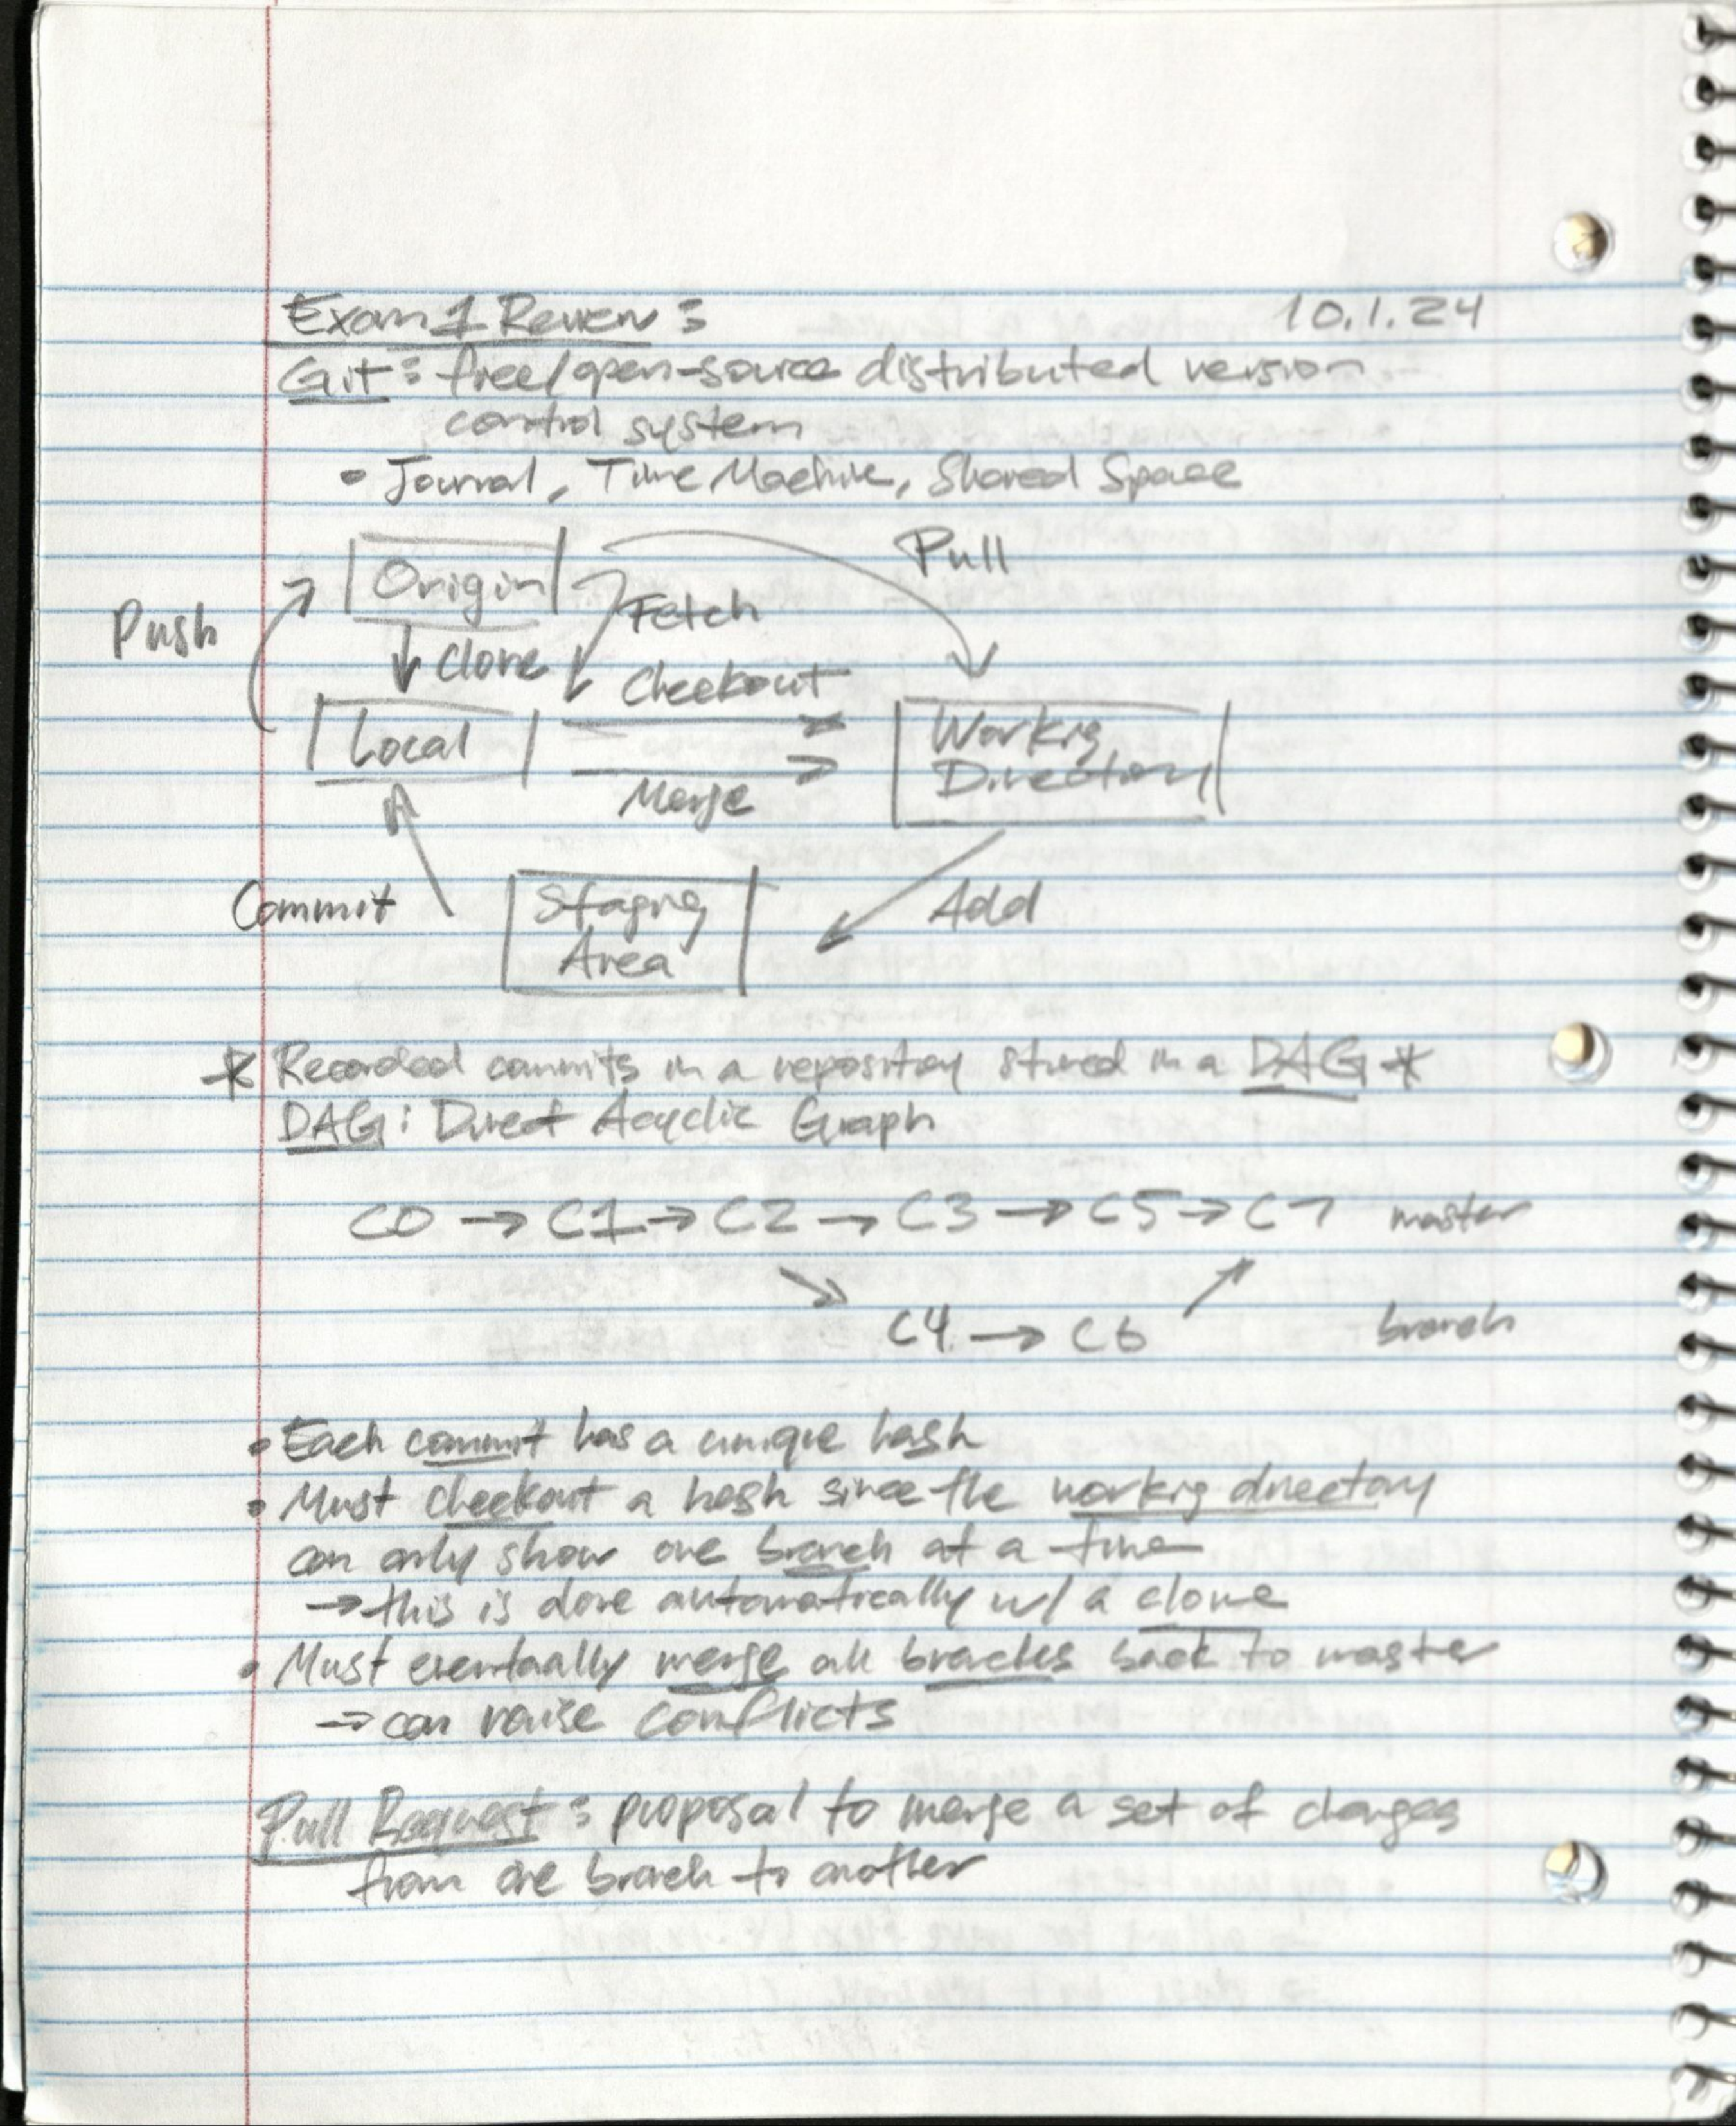 Exam 1 Review:
10.1.24
Git: free/open-source distributed version
control system
• Journal, Time Machine, Shared Space
Pull
Origin
Fetch
Push
Clone
Checkout
Local
Working
Directory
Merge
Commit
Staging
Area
Add
* Recorded commits in a repository stored in a DAG *
DAG: Direct Acyclic Graph
C0 → C1 → C2 → C3 → C5 → C7 master
C4 → C6 branch
• Each commit has a unique hash
• Must checkout a hash since the working directory
can only show one branch at a time
→ this is done automatically w/ a clone
• Must eventually merge all branches back to master
→ can raise conflicts
Pull Request: proposal to merge a set of changes
from one branch to another